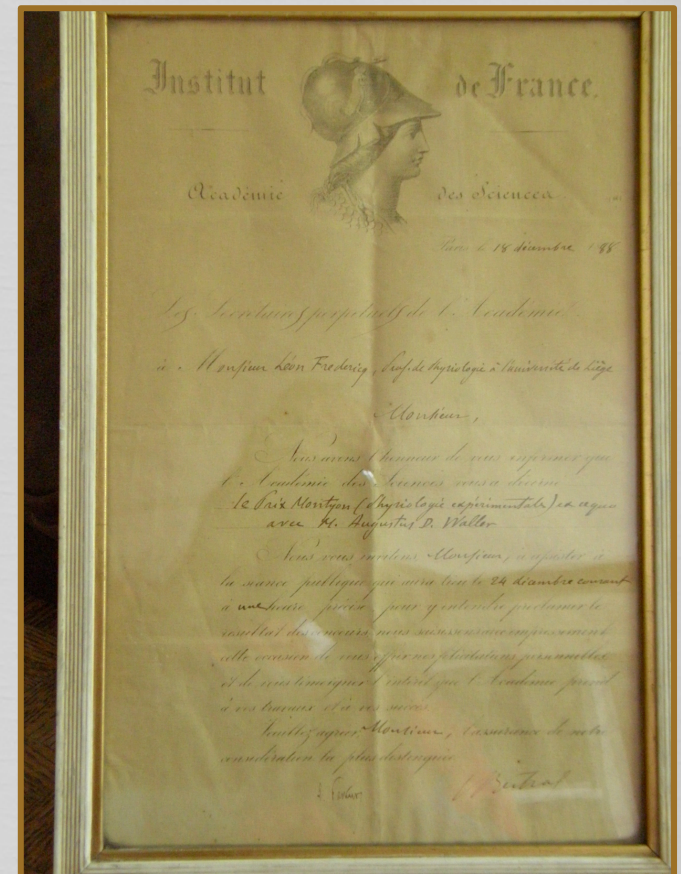 Institut de France.
Académie des Sciences
Paris, le 18 décembre 1888
Les Secrétaires perpétuels de l'Académie
à Monsieur Léon Fredericq, Prof. de Physiologie à l'université de Liège
Monsieur,
Nous avons l'honneur de vous informer que
l'Académie des Sciences vous a décerné
le Prix Montyon (Physiologie expérimentale) ex aequo
avec M. Augustus D. Waller
Nous vous invitons, Monsieur, à assister à
la séance publique qui aura lieu le 24 décembre courant
à une heure précise pour y entendre proclamer le
résultat des concours; nous saisissons avec empressement
cette occasion de vous offrir nos félicitations personnelles
et de vous témoigner l'intérêt que l'Académie prend
à vos travaux et à vos succès.
Veuillez agréer, Monsieur, l'assurance de notre
considération la plus distinguée.